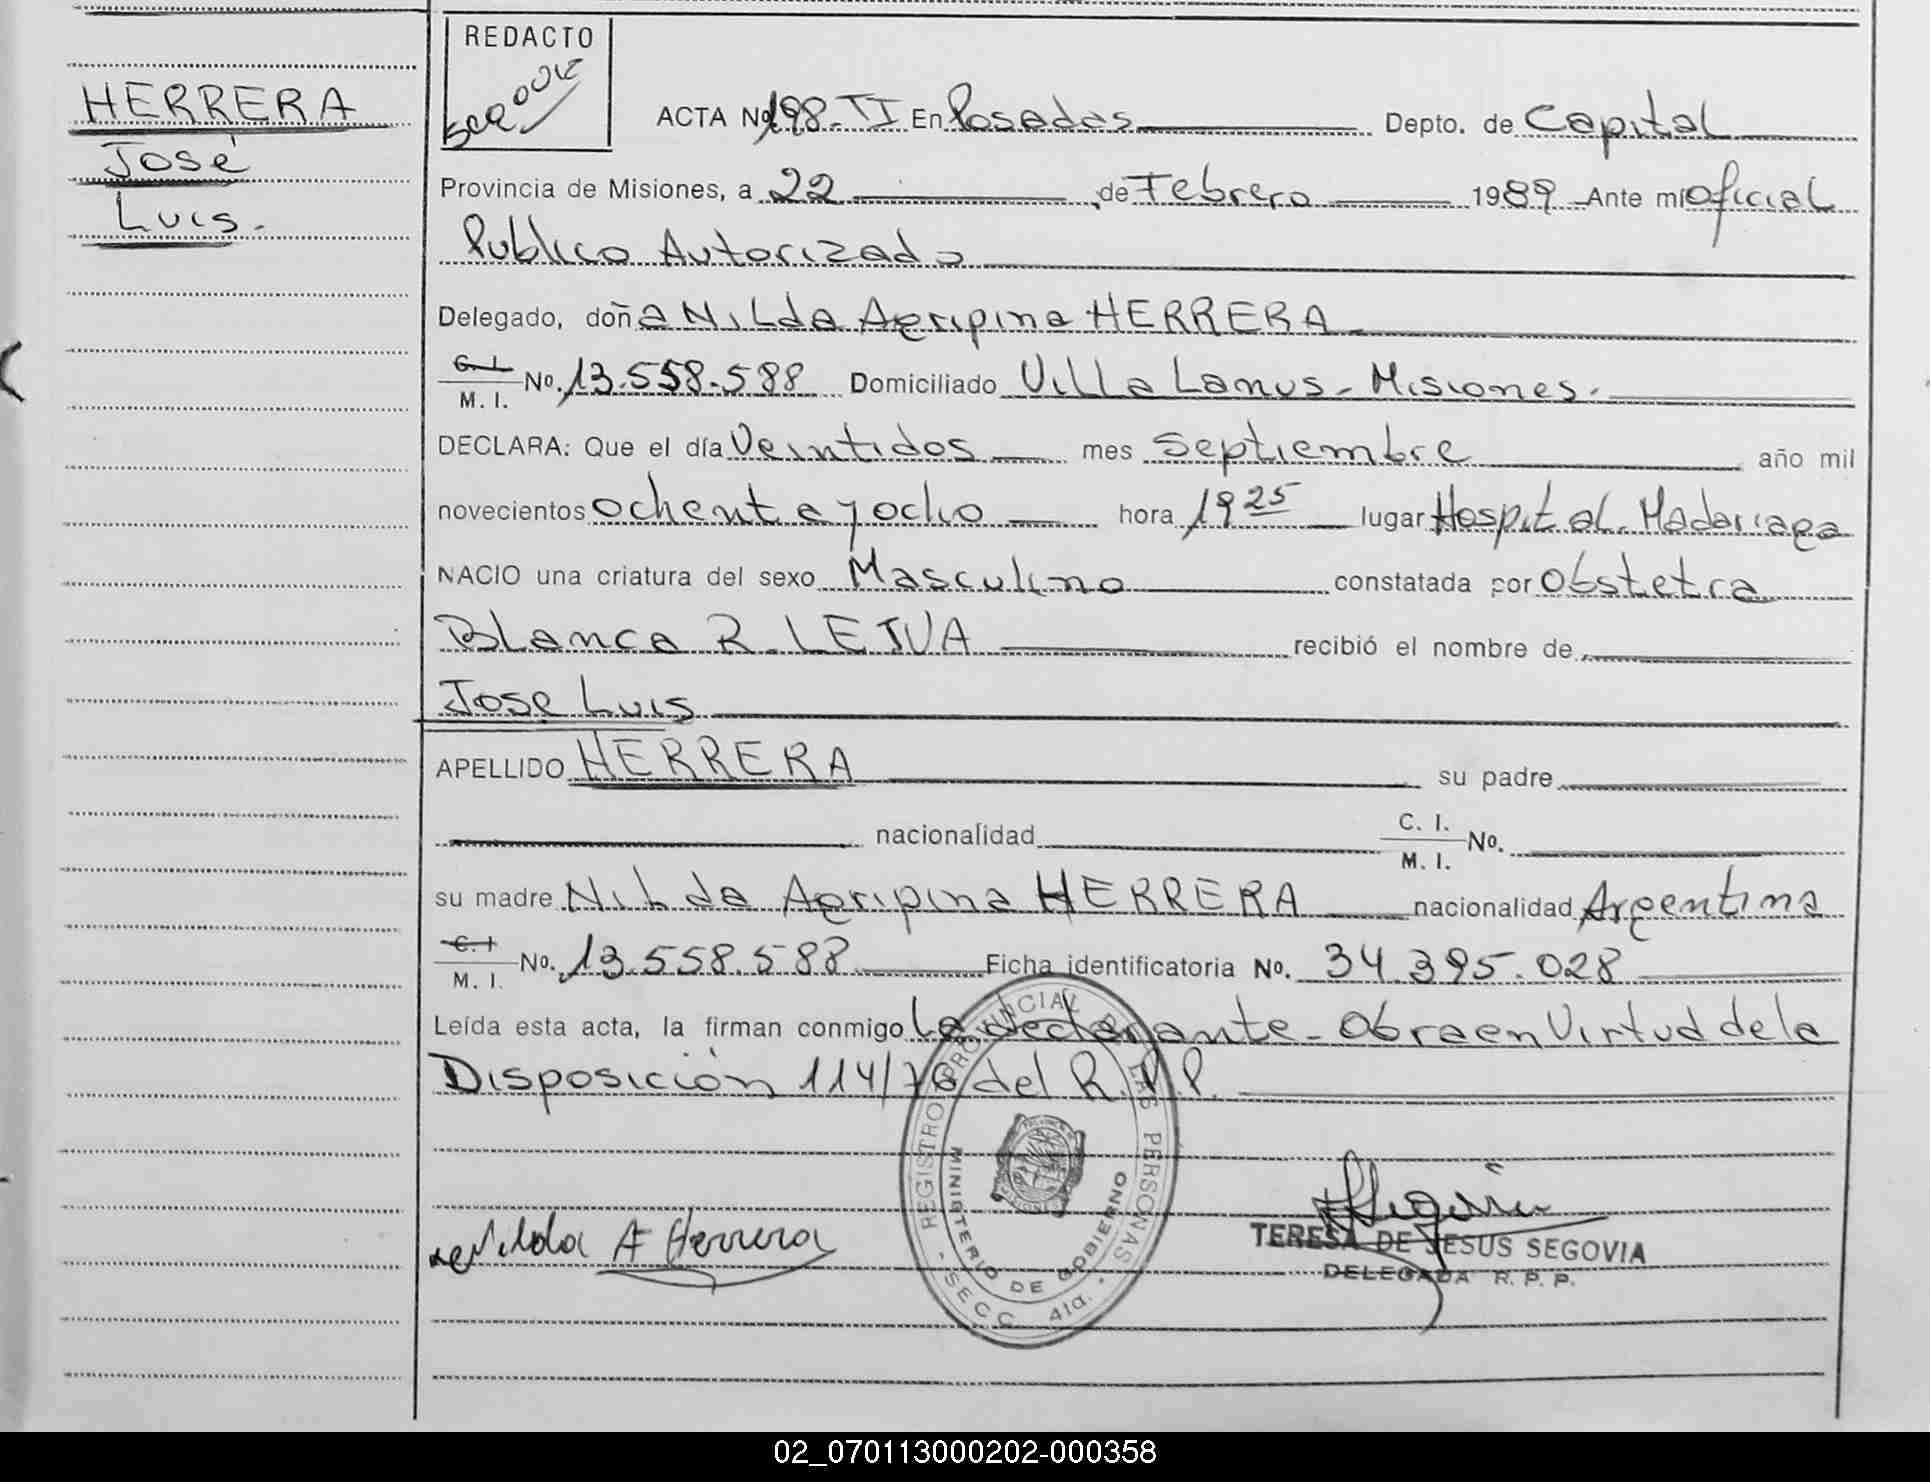 HERRERA
José
Luis.
REDACTO
ACTA No 198-TI En Posadas Depto. de Capital
Provincia de Misiones, a 22 de Febrero 1989 Ante mí oficial
Publico Autorizado
Delegado, doña Nilda Agripina HERRERA
C. I. M. I. No. 13.558.588 Domiciliado Villa Lanus - Misiones.
DECLARA: Que el día Veintidos mes Septiembre año mil
novecientos ochenta y ocho hora 19 25 lugar Hospital. Madariaga
NACIO una criatura del sexo Masculino constatada por Obstetra
Blanca R. LEIVA recibió el nombre de
Jose Luis
APELLIDO HERRERA su padre
nacionalidad C. I. M. I. No.
su madre Nilda Agripina HERRERA nacionalidad Argentina
C. I M. I. No. 13.558.588 Ficha identificatoria No. 34.395.028
Leída esta acta, la firman conmigo La declarante - Obra en Virtud de la
Disposición 114/76 del R.P.P.
REGISTRO PROVINCIAL DE LAS PERSONAS - SECC. 41a. -
MINISTERIO DE GOBIERNO
Nilda A Herrera
TERESA DE JESUS SEGOVIA
DELEGADA R. P. P.
02_070113000202-000358